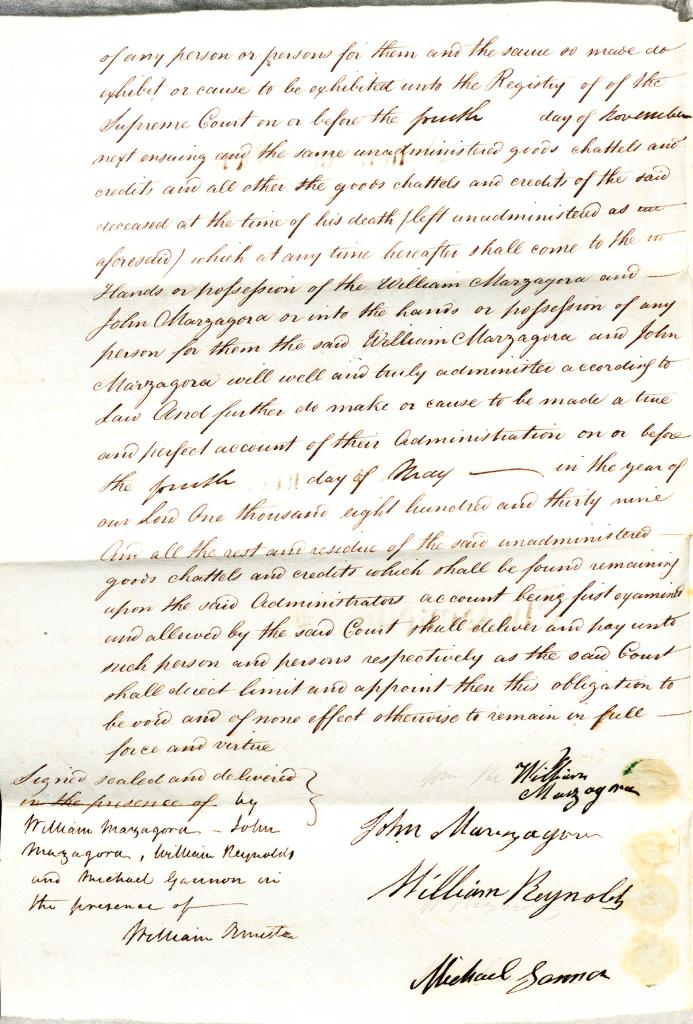 of any person or persons for them and the same so made do
exhibit or cause to be exhibited unto the Registry of of the
Supreme Court on or before the fourth day of November
next ensuing and the same unadministered goods chattels and
credits and all other the goods chattels and credits of the said
deceased at the time of his death (left unadministered as
aforesaid) which at any time hereafter shall come to the
Hands or possession of the William Marzagora and —
John Marzagora or into the hands or possession of any
person for them the said William Marzagora and John
Marzagora will well and truly administer according to
Law And further do make or cause to be made a true
and perfect account of their Administration on or before
the fourth day of May — in the year of
our Lord One thousand eight hundred and thirty nine
And all the rest and residue of the said unadministered —
goods chattels and credits which shall be found remaining
upon the said Administrators account being first examined
and allowed by the said Court shall deliver and pay unto
such person and persons respectively as the said Court
shall direct limit and appoint then this obligation to
be void and of none effect otherwise to remain in full —
force and virtue
Signed sealed and delivered
in the presence of by
William Mazagora – John
Mazagora, William Reynolds
and Michael Gannon in
the presence of —
William
William
Marzagora
John Marzagora
William Reynolds
Michael Gannon